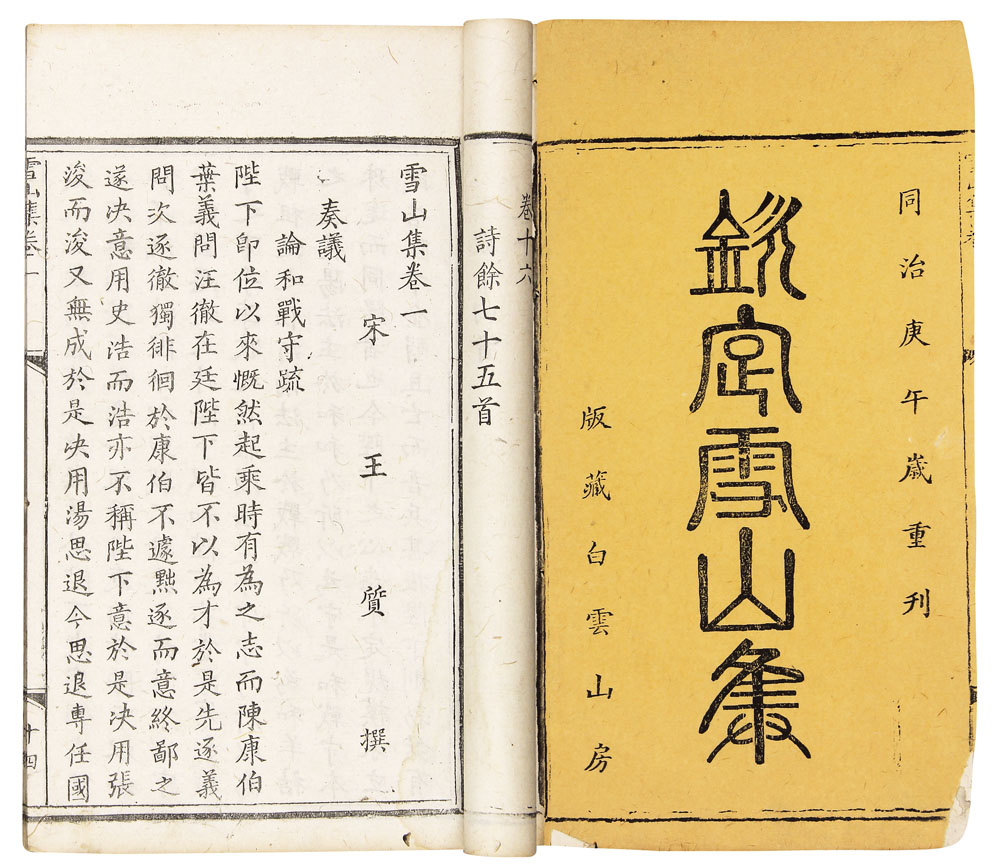 同治庚午歲重刊
欽定雪山集
版藏白雲山房
卷十六
詩餘七十五首
雪山集卷一
宋 王 質 撰
奏議
論和戰守疏
陛下卽位以來慨然起乘時有為之志而陳康伯
葉義問汪徹在廷陛下皆不以為才於是先逐義
問次逐徹獨徘徊於康伯不遽黜逐而意終鄙之
遂决意用史浩而浩亦不稱陛下意於是决用張
浚而浚又無成於是决用湯思退今思退專任國
雪山集卷一
十四